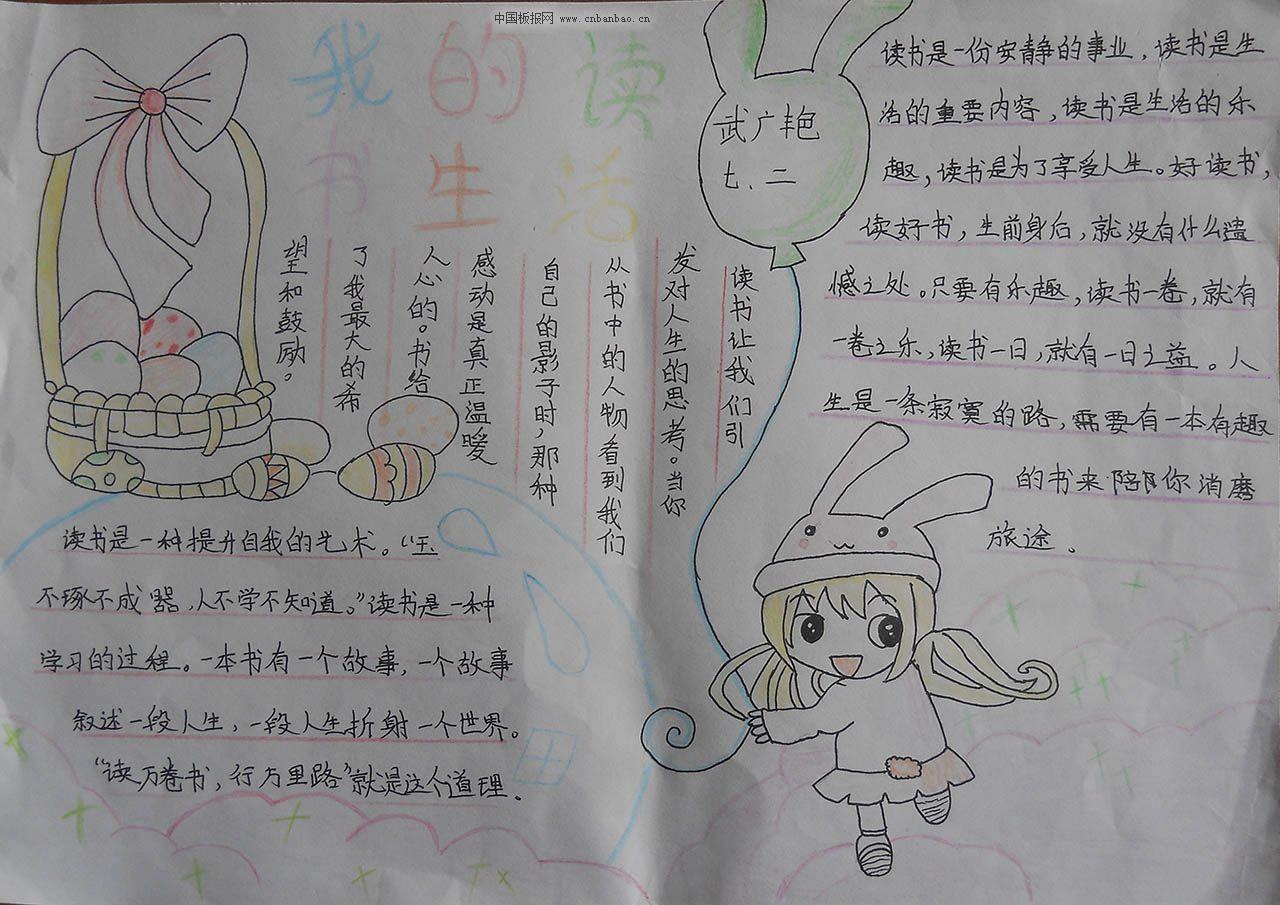 中国板报网 www.cnbanbao.cn
我的读
书生活
武广艳
七、二
读书是一份安静的事业，读书是生
活的重要内容，读书是生活的乐
趣，读书是为了享受人生。好读书，
读好书，生前身后，就没有什么遗
憾之处。只要有乐趣，读书一卷，就有
一卷之乐，读书一日，就有一日之益。人
生是一条寂寞的路，需要有一本有趣
的书来陪你消磨
旅途。
读书让我们引
发对人生的思考。当你
从书中的人物看到我们
自己的影子时，那种
感动是真正温暖
人心的。书给
了我最大的希
望和鼓励。
读书是一种提升自我的艺术。“玉
不琢不成器，人不学不知道。”读书是一种
学习的过程。一本书有一个故事，一个故事
叙述一段人生，一段人生折射一个世界。
“读万卷书，行万里路”就是这个道理。